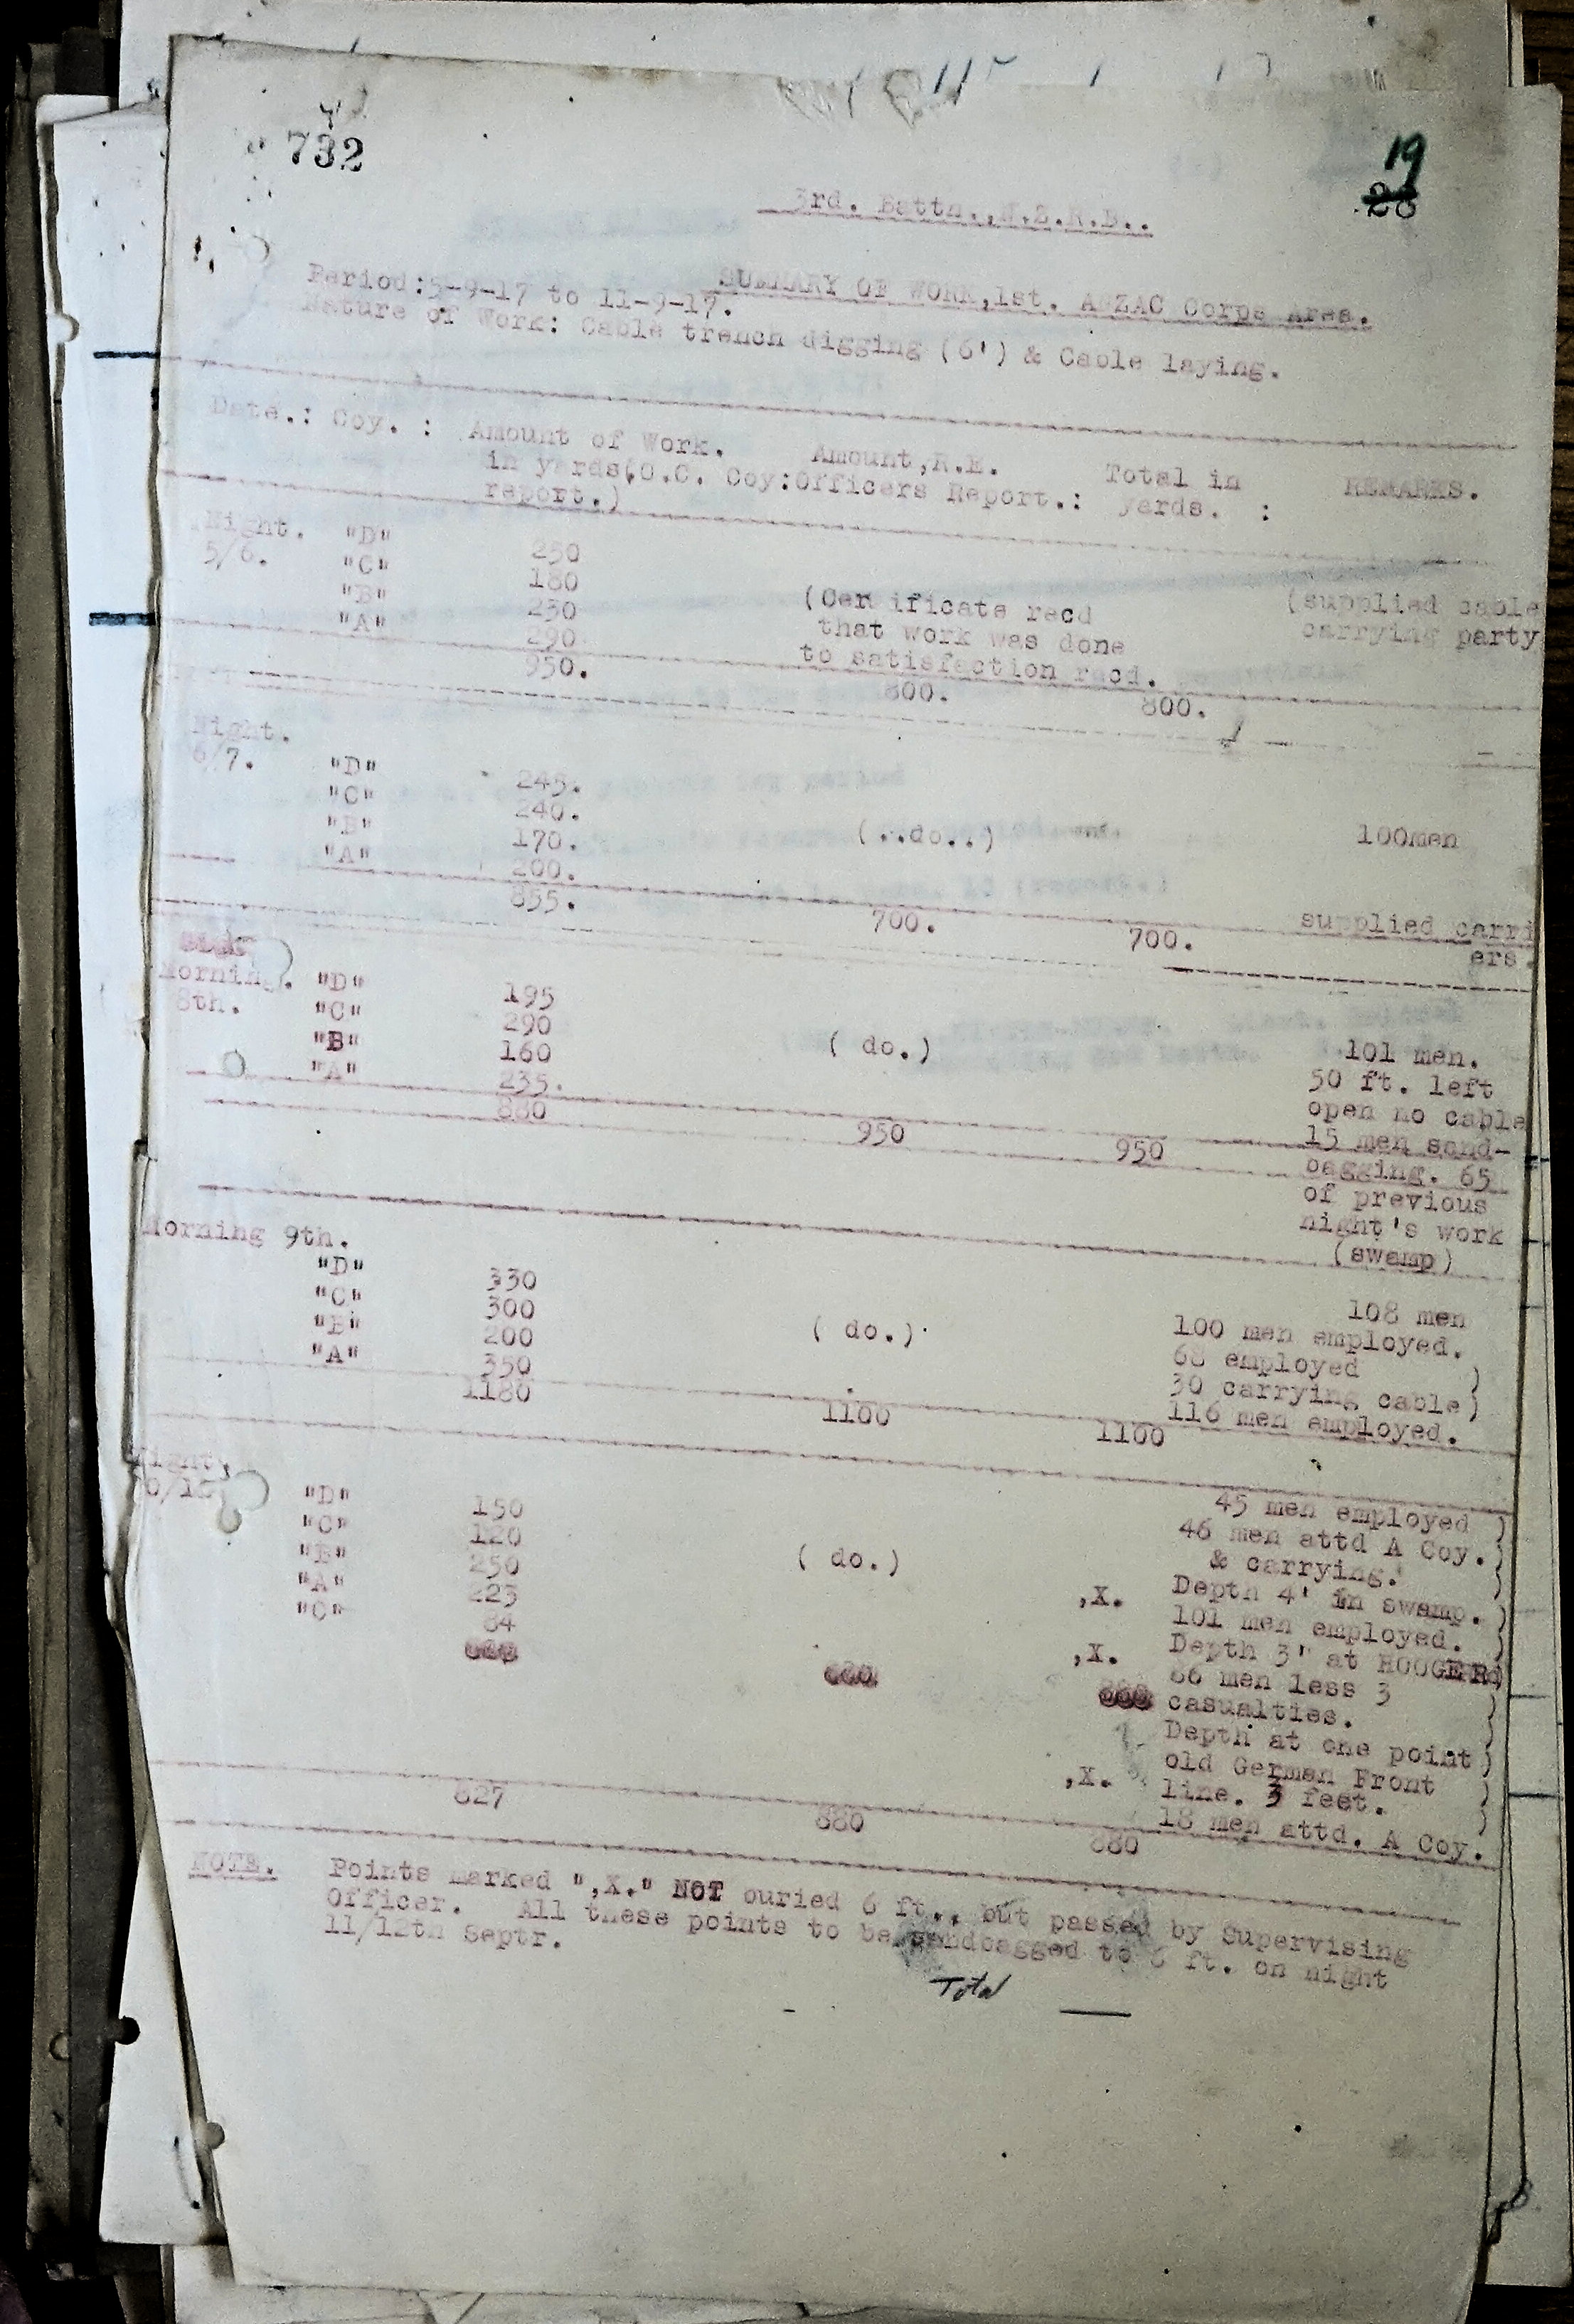 732
19
28
3rd. Battn.,N.Z.R.B..
SUMMARY OF WORK,1st. ANZAC Corps Area.
Period:5-9-17 to 11-9-17.
Nature of Work: Cable trench digging (6') & Cable laying.
Date.: Coy. : Amount of Work. Amount,R.E. Total in REMARKS.
in yards(O.C. Coy:Officers Report.: yards. :
report.)
Night. "D" 250
5/6. "C" 180
"B" 230 (Cer ificate recd (supplied cable
"A" 290 that work was done carrying party
950. to satisfaction recd.
800. 800.
Night.
6/7. "D" 245.
"C" 240.
"B" 170. (..do..) 100men
"A" 200.
855. 700. 700. supplied carri
ers.
Morning. "D" 195
8th. "C" 290
"B" 160 ( do.) 101 men.
"A" 235. 50 ft. left
880 open no cable
950 950 15 men sand-
bagging. 65
of previous
night's work
(swamp)
Morning 9th.
"D" 330 108 men
"C" 300 100 men employed.
"B" 200 ( do.) 68 employed )
"A" 350 30 carrying cable)
1180 116 men employed.
1100 1100
Night,
"D" 150 45 men employed )
"C" 120 46 men attd A Coy.)
"B" 250 ( do.) & carrying. )
"A" 223 ,X. Depth 4' in swamp. )
"C" 84 101 men employed. )
,X. Depth 3' at HOOGE Rd)
86 men less 3 )
casualties. )
Depth at one point )
old German Front )
,X. line. 3 feet. )
827 880 880 18 men attd. A Coy.
NOTE. Points marked ",X." NOT buried 6 ft., but passed by Supervising
Officer. All these points to be sandbagged to 6 ft. on night
11/12th Septr.
Total